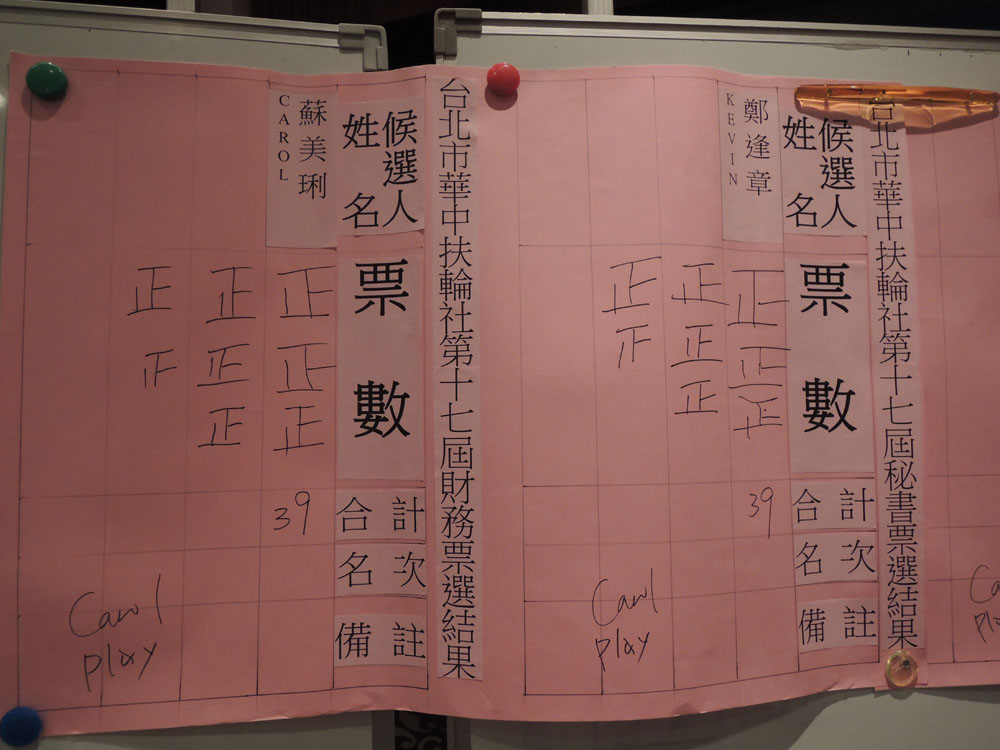 台北市華中扶輪社第十七屆秘書票選結果
候選人
姓名
票數
合計
名次
備註
鄭逢章
KEVIN
正正正
正正正
正
39
Carol
play
台北市華中扶輪社第十七屆財務票選結果
候選人
姓名
票數
合計
名次
備註
蘇美琍
CAROL
正正正
正正正
正
39
Carol
play